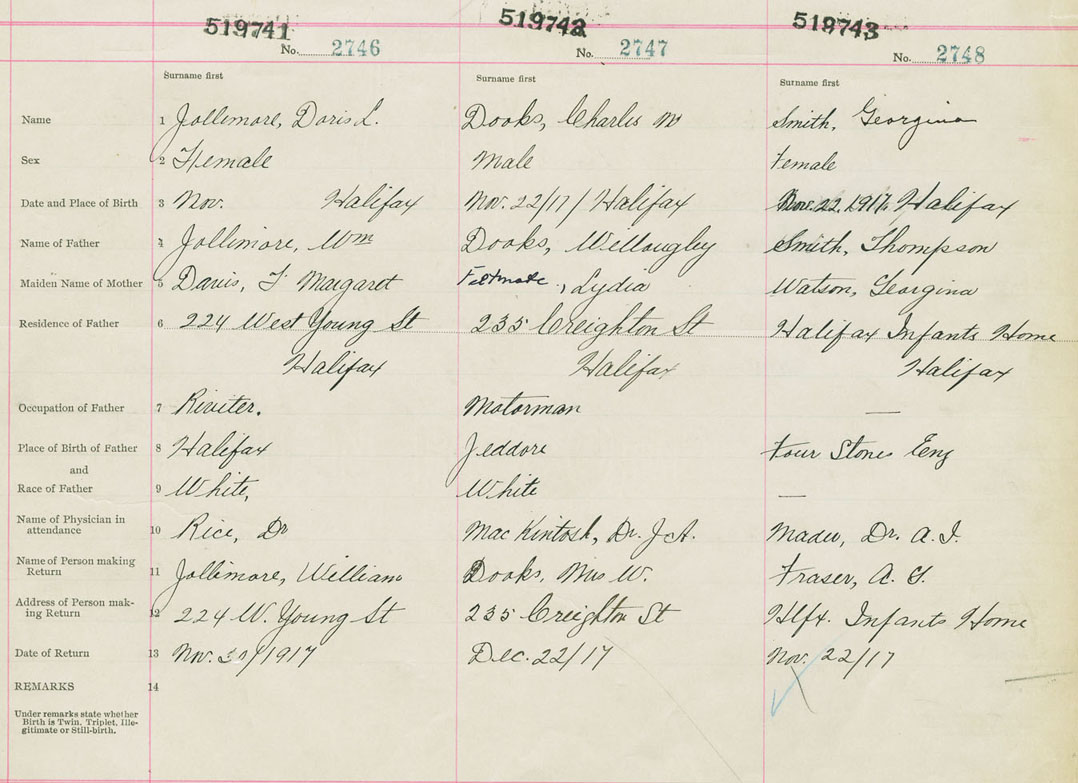 519741 519742 519743
No. 2746 No. 2747 No. 2748
Surname first Surname first Surname first
Name 1 Jollimore, Doris L. Dooks, Charles M Smith, Georgina
Sex 2 Female Male Female
Date and Place of Birth 3 Nov. Halifax Nov. 22/17/ Halifax Nov. 22, 1917. Halifax
Name of Father 4 Jollimore, Wm Dooks, Willougley Smith, Thompson
Maiden Name of Mother 5 Davis, F Margaret , Lydia Watson, Georgina
Residence of Father 6 224 West Young St 235 Creighton St Halifax Infants Home
Halifax Halifax Halifax
Occupation of Father 7 Riviter. Motorman —
Place of Birth of Father 8 Halifax Jeddore Four Stones Eng
and
Race of Father 9 White, White —
Name of Physician in
attendance 10 Rice, Dr MacKintosh, Dr. J A. Dr. A. I.
Name of Person making
Return 11 Jollimore, William Dooks, Mrs W. Fraser, A. G.
Address of Person mak-
ing Return 12 224 W. Young St 235 Creighton St Hlfx. Infants Home
Date of Return 13 Nov. 30/1917 Dec. 22/17 Nov. 22/17
REMARKS 14
Under remarks state whether
Birth is Twin, Triplet, Ille-
gitimate or Still-birth.